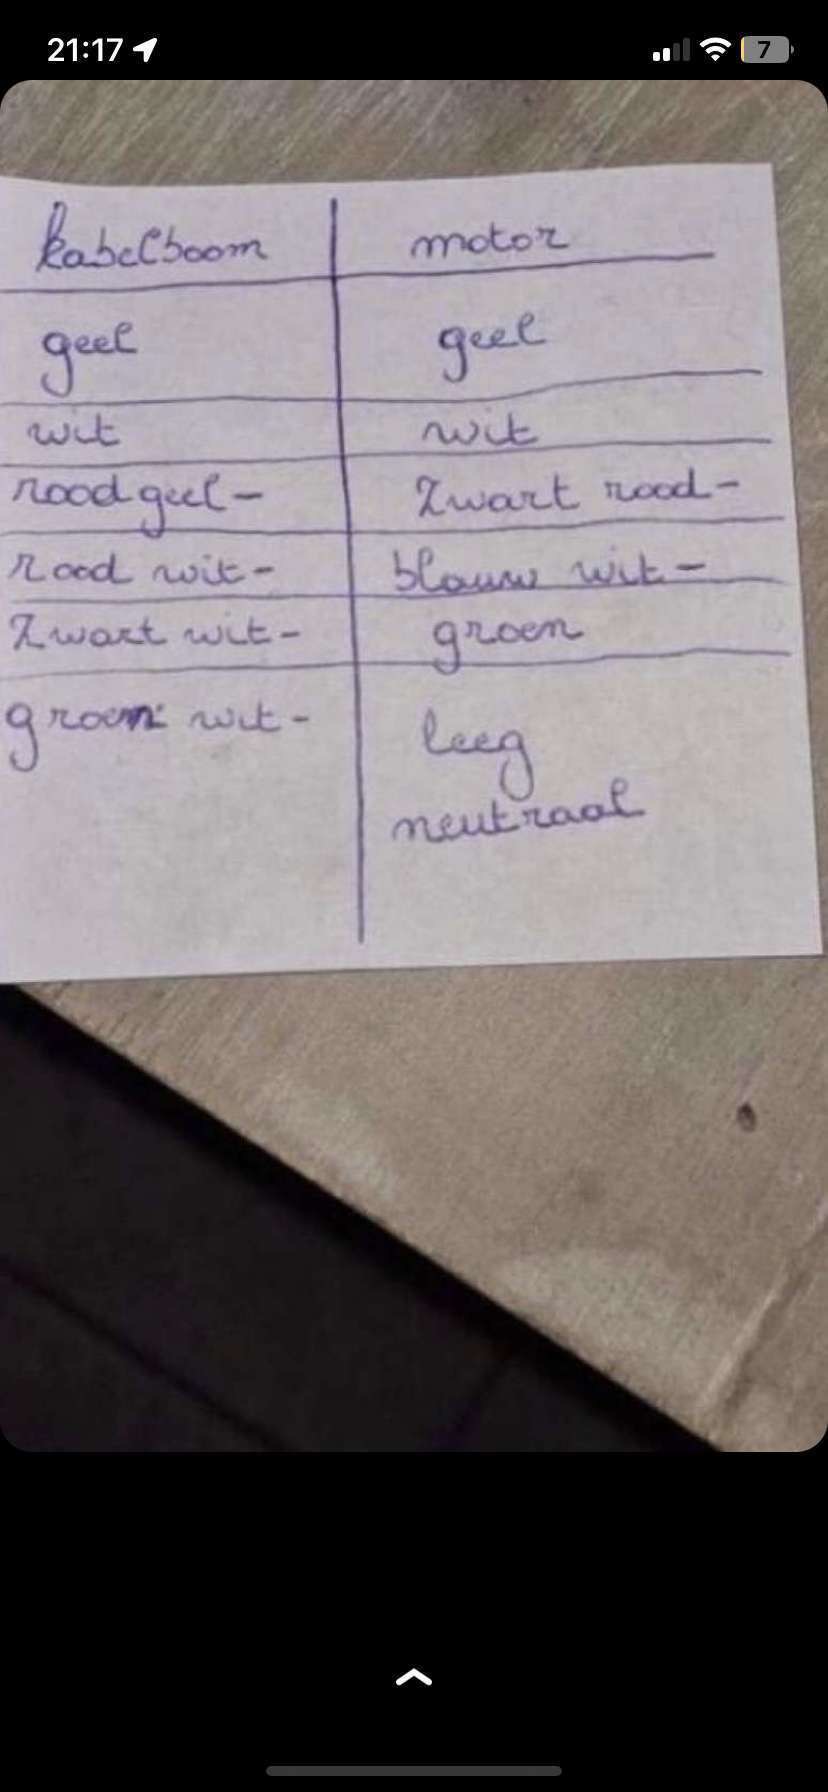 21:17
7
kabelboom motor
geel geel
wit wit
rood geel- zwart rood-
rood wit- blauw wit-
zwart wit- groen
groen wit- leeg
neutraal